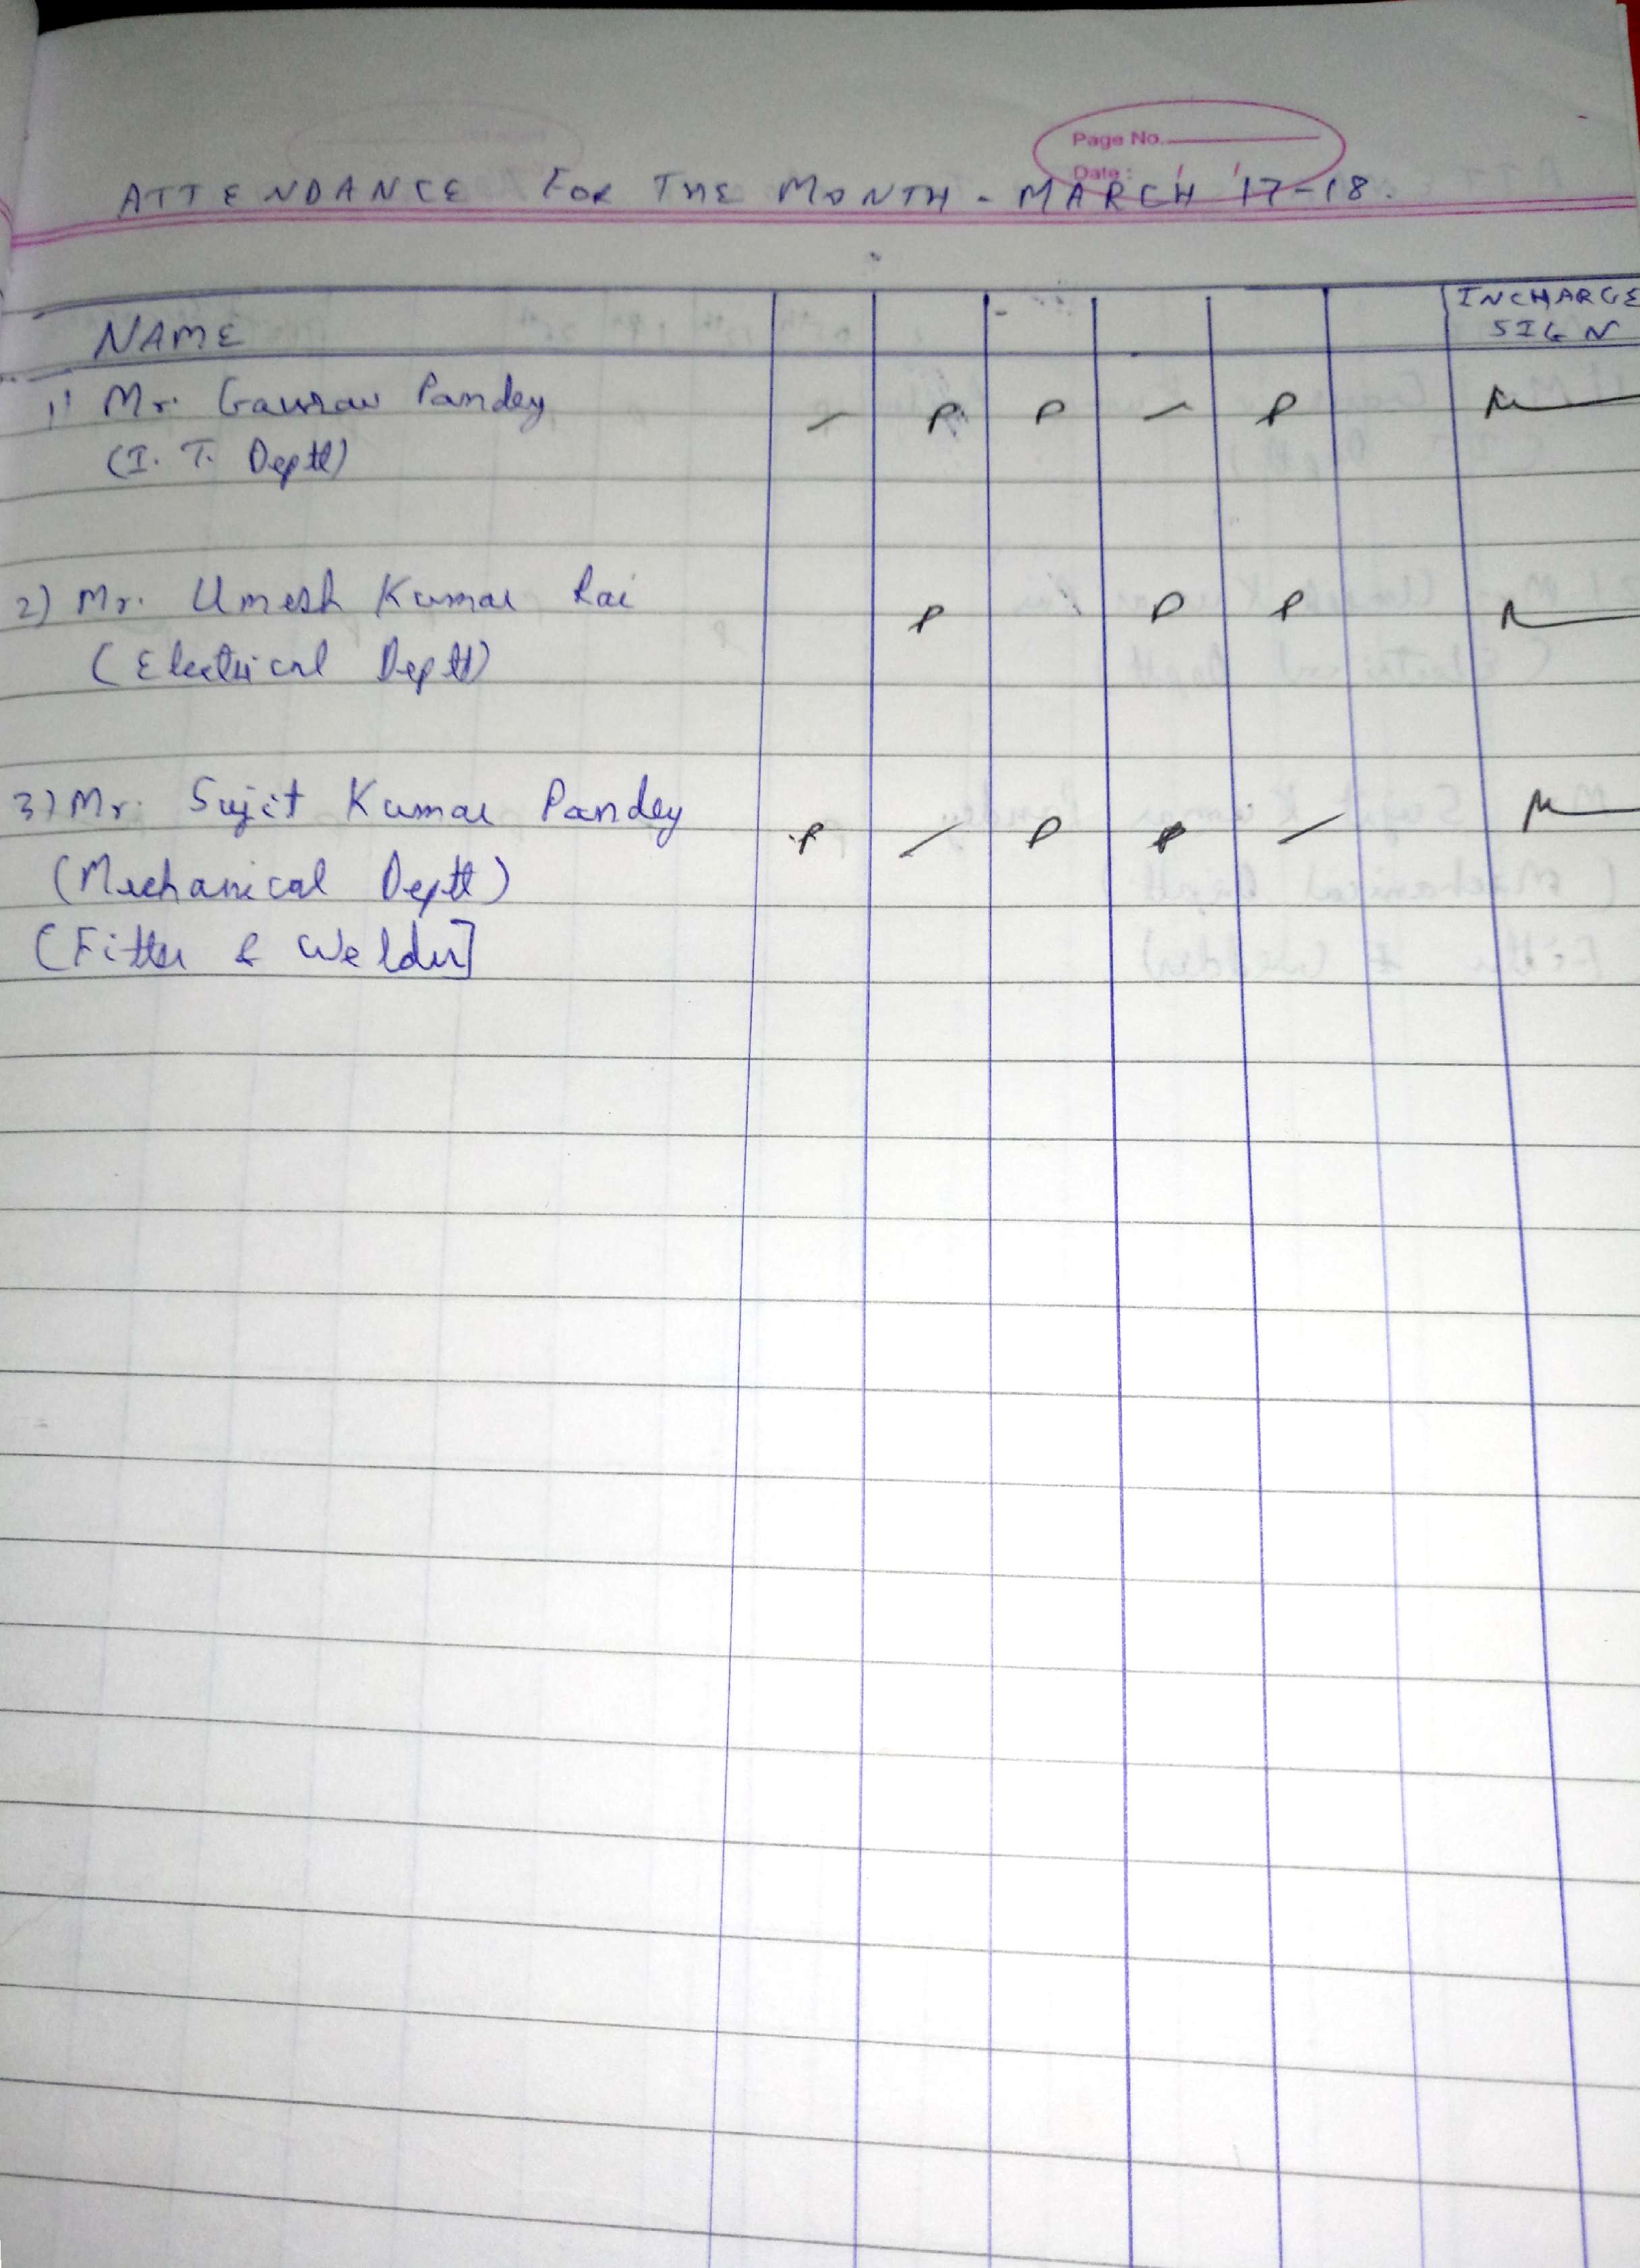 Page No.
Date :
ATTENDANCE FOR THE MONTH - MARCH '17-18.
NAME INCHARGE
SIGN
1) Mr. Gaurav Pandey - P P - P
(I. T. Deptt)
2) Mr. Umesh Kumar Rai P P P
(Electrical Deptt)
3) Mr. Sujit Kumar Pandey P - P P -
(Mechanical Deptt)
(Fitter & Welder]